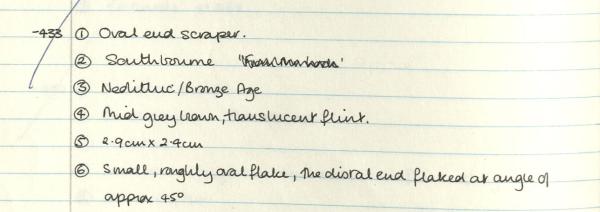 -433 ① Oval end scraper.
② Southbourne
③ Neolithic/Bronze Age
④ Mid grey brown, translucent flint.
⑤ 2.9cm x 2.4cm
⑥ Small, roughly oval flake, the distal end flaked at angle of
approx 45°